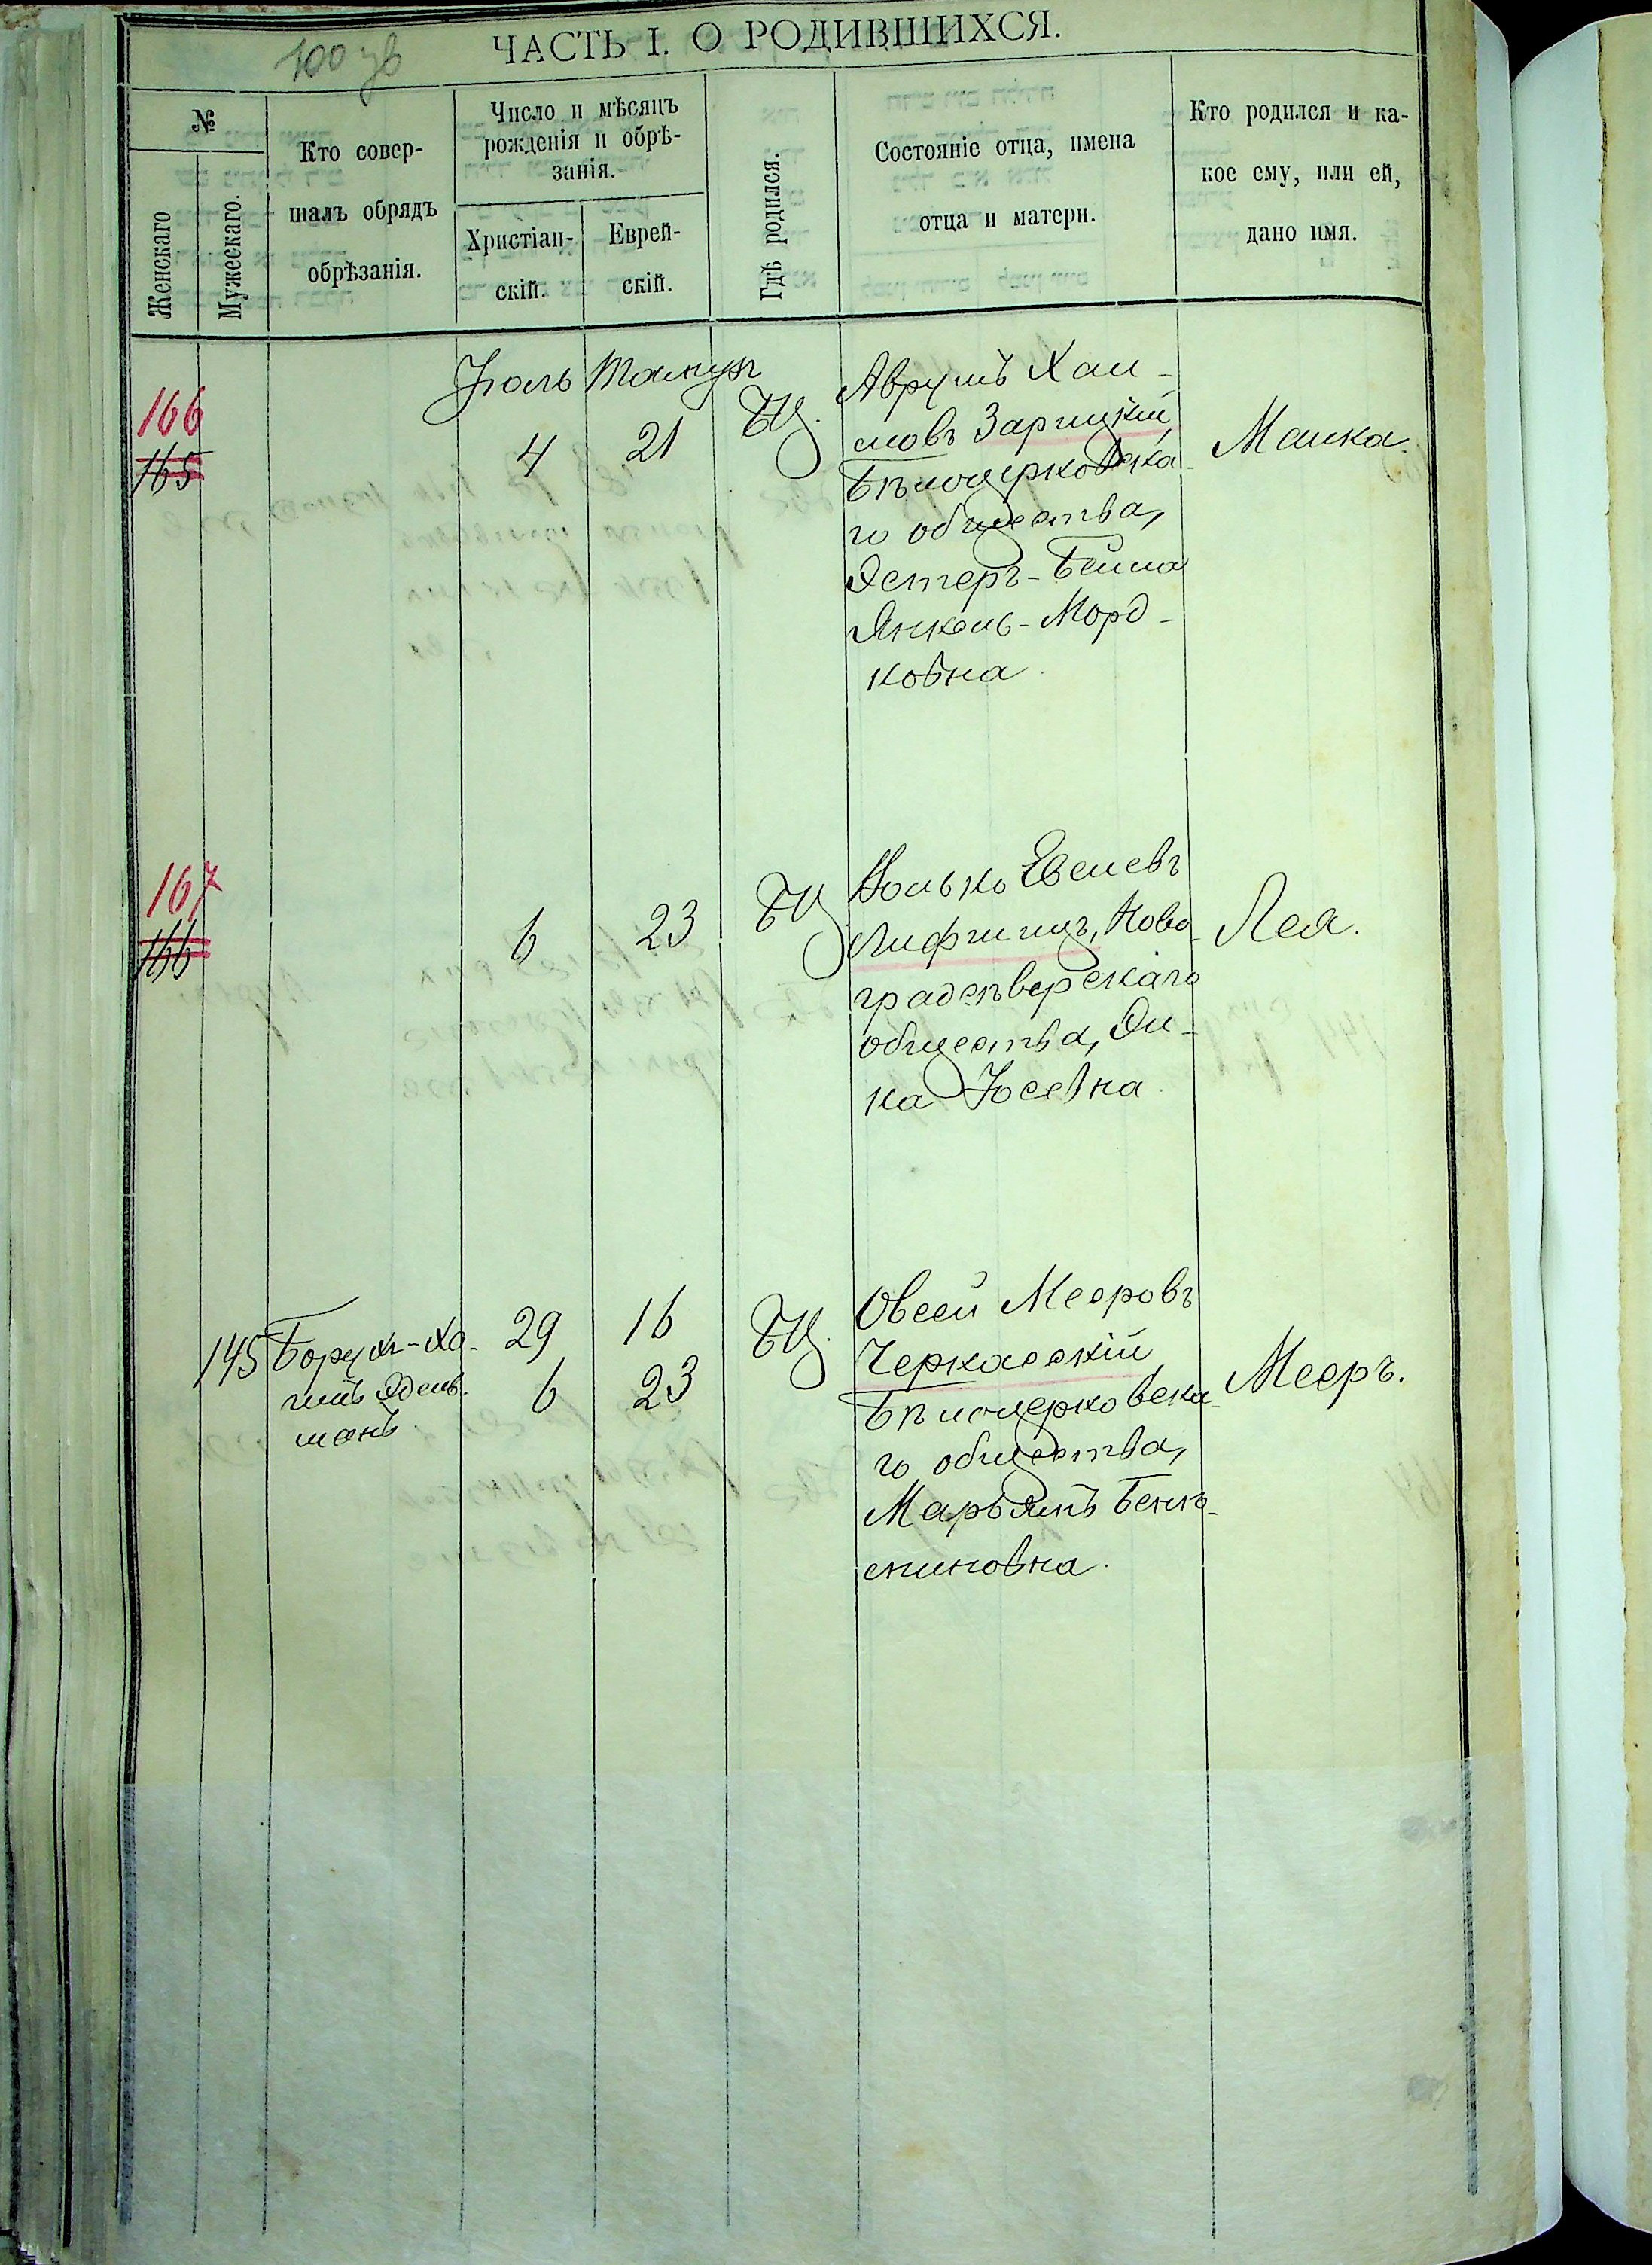 100 зв
ЧАСТЬ I. О РОДИВШИХСЯ.
№
Женскаго
Мужескаго.
Кто совер-
шалъ обрядъ
обрѣзанія.
Число и мѣсяцъ
рожденія и обрѣ-
занія.
Христіан-
скій.
Еврей-
скій.
Гдѣ родился.
Состояніе отца, имена
отца и матери.
Кто родился и ка-
кое ему, или ей,
дано имя.
Іюль
166
165
4
21
БЦ.
Аврумъ Хаи-
мовъ Зарицкій,
Бѣлоцерковска-
го общества,
Эстеръ-Бейла
Янкель-Морд-
ковна
Малка.
167
166
6
23
БЦ
Волько
Лифшицъ, Ново
градсѣверскаго
общества,
ка Юсевна.
Лея.
145
Борухъ-Ха-
имъ Эдель-
манъ
29
16
6
23
БЦ.
Овсей Мееровъ
Черкасскій
Бѣлоцерковска-
го общества,
Марьямъ Беня-
миновна.
Мееръ.